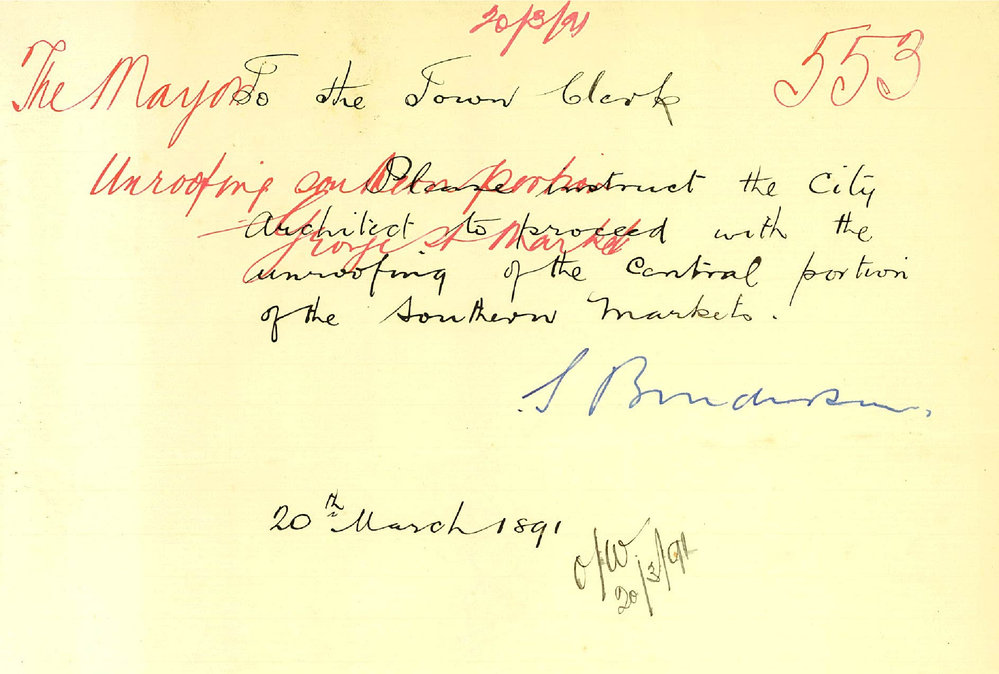 20/3/91
The Mayor
553
To the Town Clerk
Unroofing southern portion
George St Market
Please instruct the City
Architect to proceed with the
unroofing of the central portion
of the Southern Markets.
S
20th March 1891
O/W
20/3/91